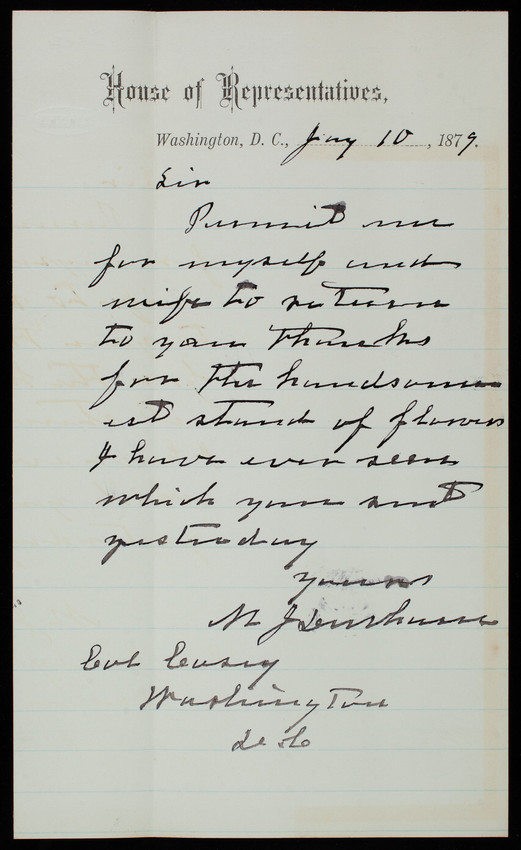 House of Representatives,
Washington, D. C., Jany 10, 1879.
Sir
Permit me
for myself and
wife to return
to you thanks
for the handsom
est stand of flowers
I have ever seen
which you sent
yesterday
Yours
M J Durham
Col Casey
Washington
D C